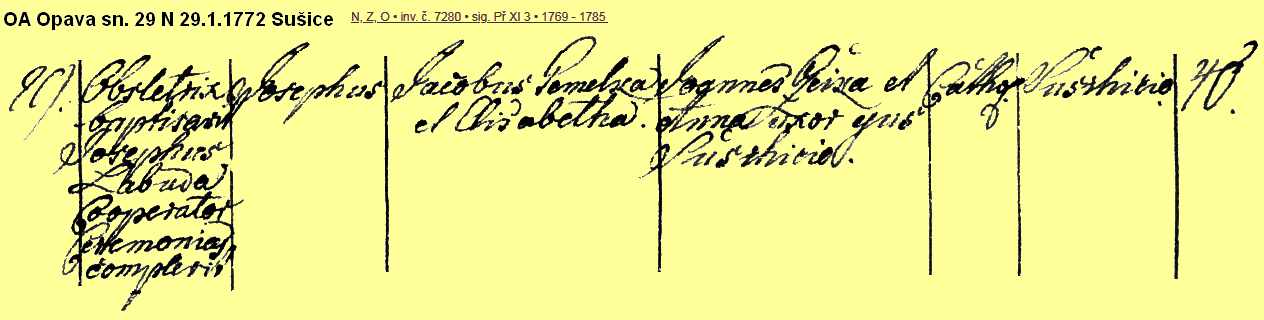 OA Opava sn. 29 N 29.1.1772 Sušice N, Z, O • inv. č. 7280 • sig. Př XI 3 • 1769 - 1785
29. Obstetrix Josephus Jacobus Pemelka Joannes Geiza et Cathq. Sušzhicio 40.
baptisavit et Elisabetha. Anna Uxor ejus
Josephus Sušzhicio.
Labuda
Cooperator
Ceremonias
complevit